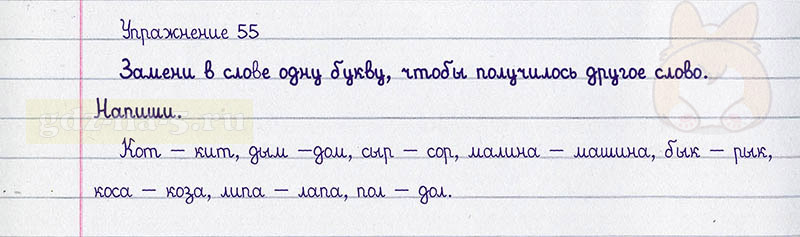 Упражнение 55
Замени в слове одну букву, чтобы получилось другое слово.
Напиши.
gdz-na-5.ru
Кот – кит, дым –дом, сыр – сор, малина – машина, бык – рык,
коса – коза, липа – лапа, пол – дол.